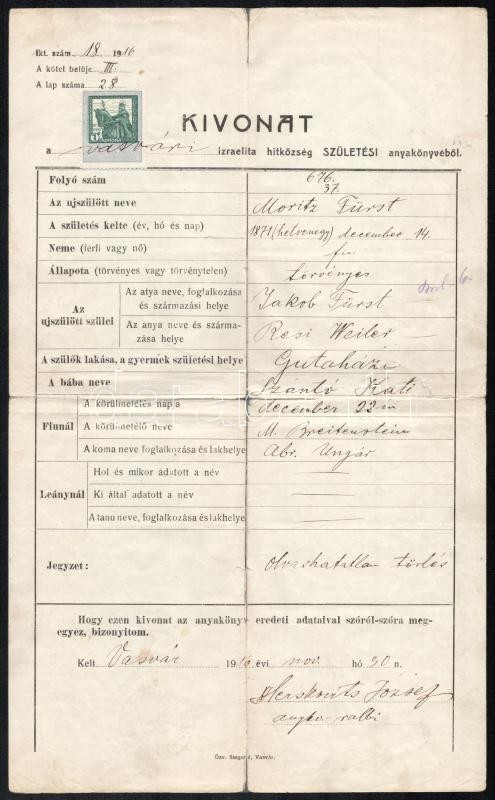 Ikt. szám 18. 1916
A kötet betüje III.
A lap száma 28
KIVONAT
a vasvári izraelita hitközség SZÜLETÉSI anyakönyvéből.
Folyó szám 676.
37.
Az ujszülött neve Moritz Fürst
A születés kelte (év, hó és nap) 1871 (hetvenegy) december 14.
Neme (férfi vagy nő) fiu
Állapota (törvényes vagy törvénytelen) törvényes
Az ujszülött szülei
Az atya neve, foglalkozása és származási helye Jakob Fürst
Az anya neve és származása helye Resi Weiler
A szülők lakása, a gyermek születési helye Gutaháza
A bába neve Szántó Kati
Fiunál
A körülmetélés napja december 22-én
A körülmetélő neve M. Breitenstein
A koma neve foglalkozása és lakhelye Abr. Ungár
Leánynál
Hol és mikor adatott a név
Ki által adatott a név
A tanu neve, foglalkozása és lakhelye
Jegyzet: olvashatatlan törlés
Hogy ezen kivonat az anyakönyv eredeti adataival szóról-szóra megegyez, bizonyitom.
Kelt Vasvár 1916 évi nov. hó 30 n.
Herskovits József
anyk.-rabbi
Özv. Singer é, Vasvár.